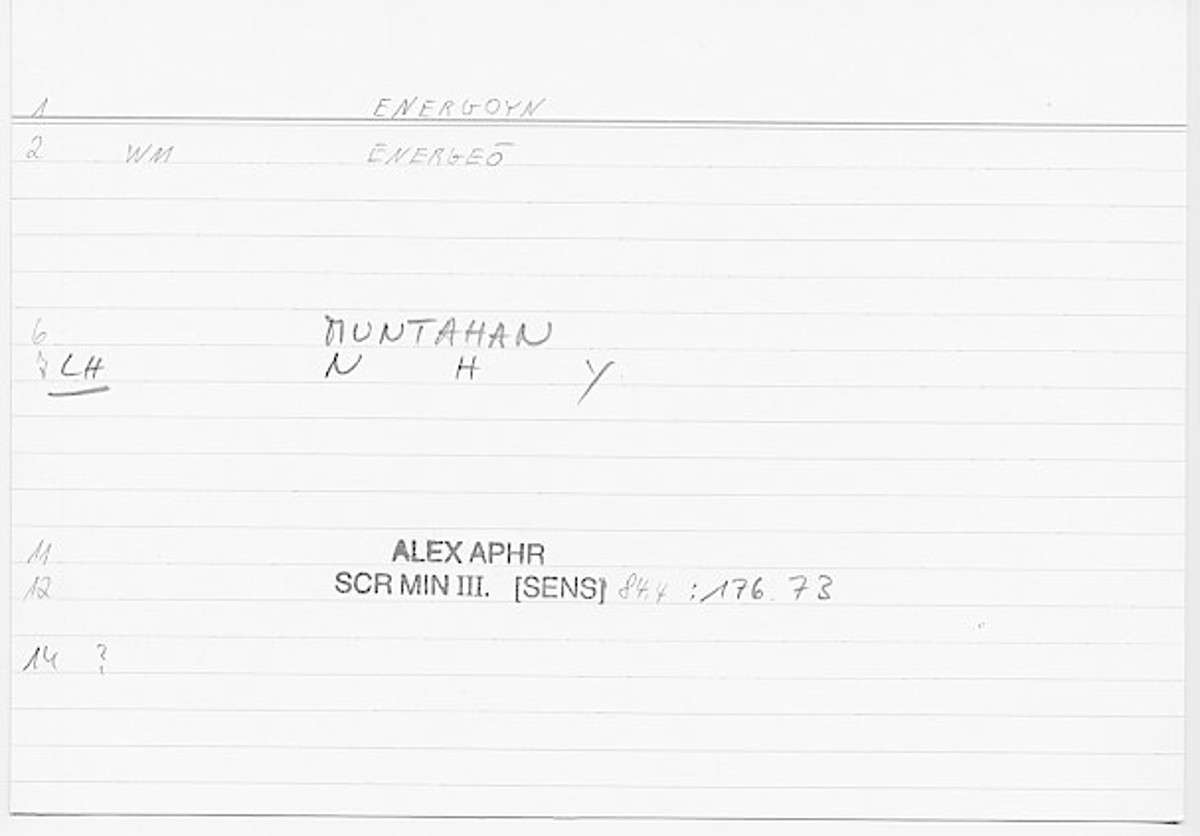 1 ENERGOYN
2 WM ENERGEŌ
6 MUNTAHAN
7 LH N H Y
11 ALEX APHR
12 SCR MIN III. [SENS] 84.4 : 176.73
14 ?